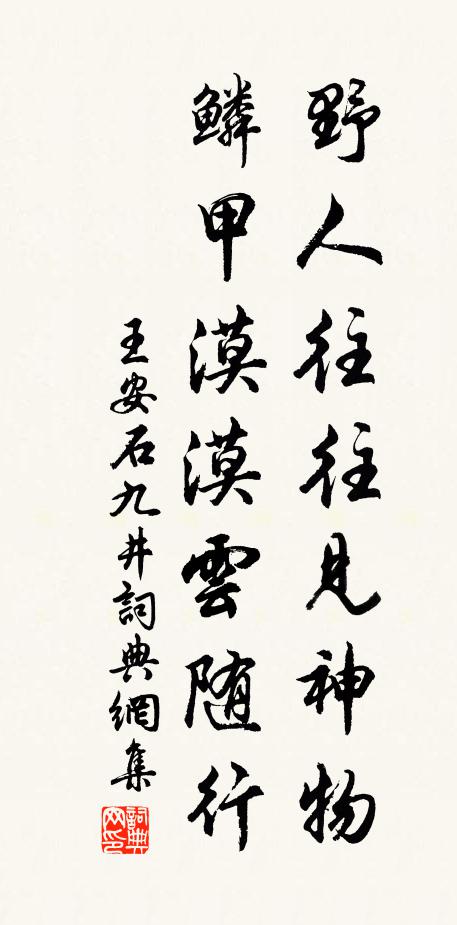 野人往往見神物
鱗甲漠漠雲随行
王安石九井詞典網集
詞典网印